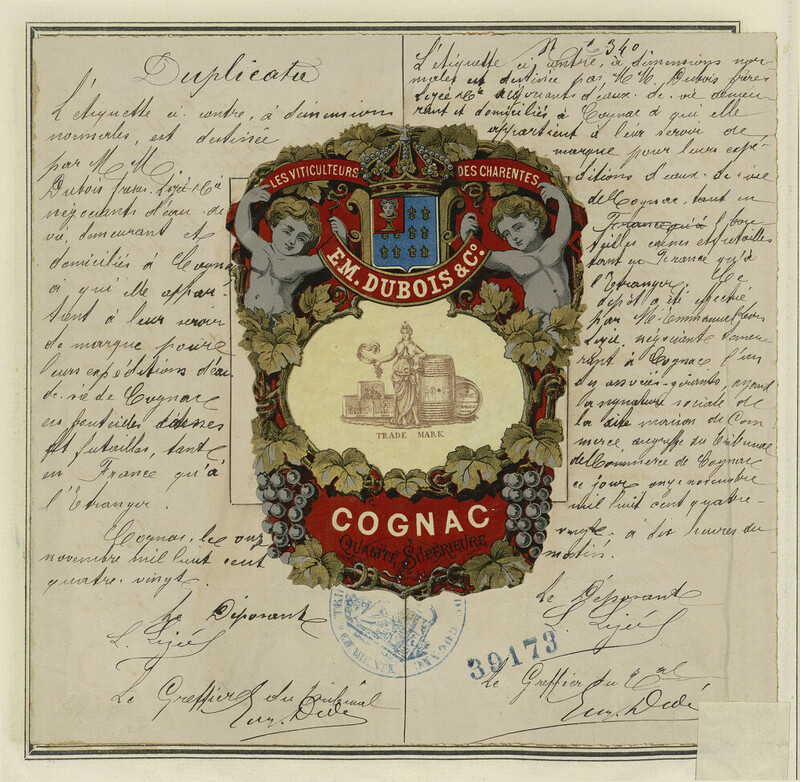 Duplicata
L'étiquette ci-contre, à dimensions
normales, est destinée
par M M
Dubois frères Lizé & Cie
négociants d'eau-de-
vie, demeurant et
domiciliés à Cognac
à qui elle appar-
tient à leur servir
de marque pour
leurs expéditions d'eau
de-vie de Cognac
en bouteilles, caisses
et futailles, tant
en France qu'à
l'Etranger.
Cognac, le onze
novembre mil huit cent
quatre-vingt.
Le Déposant
L. Lizé
Le Greffier du Tribunal
Eug. Didé
LES VITICULTEURS DES CHARENTES
EM. DUBOIS & Co.
TRADE MARK
COGNAC
QUALITÉ SUPÉRIEURE
No 1340
L'étiquette ci-contre, à dimensions nor-
males est destinée par M M. Dubois frères
Lizé & Cie négociants d'eaux-de-vie demeu-
rant et domiciliés à Cognac à qui elle
appartient à leur servir de
marque pour leurs expé-
ditions d'eaux-de-vie
de Cognac, tant en
France qu'à bou-
teilles caisses et futailles
tant en France qu'à
l'Etranger. Ce
dépôt a été effectué
par M. Emmanuel
Lizé, négociant demeu-
rant à Cognac, l'un
des associés-gérants, ayant
la signature sociale de
la dite maison de Com-
merce, au greffe du Tribunal
de Commerce de Cognac
ce jour onze novembre
mil huit cent quatre-
vingt, à dix heures du
matin.
Le Déposant
L. Lizé
39173
Le Greffier du Tal
Eug. Didé